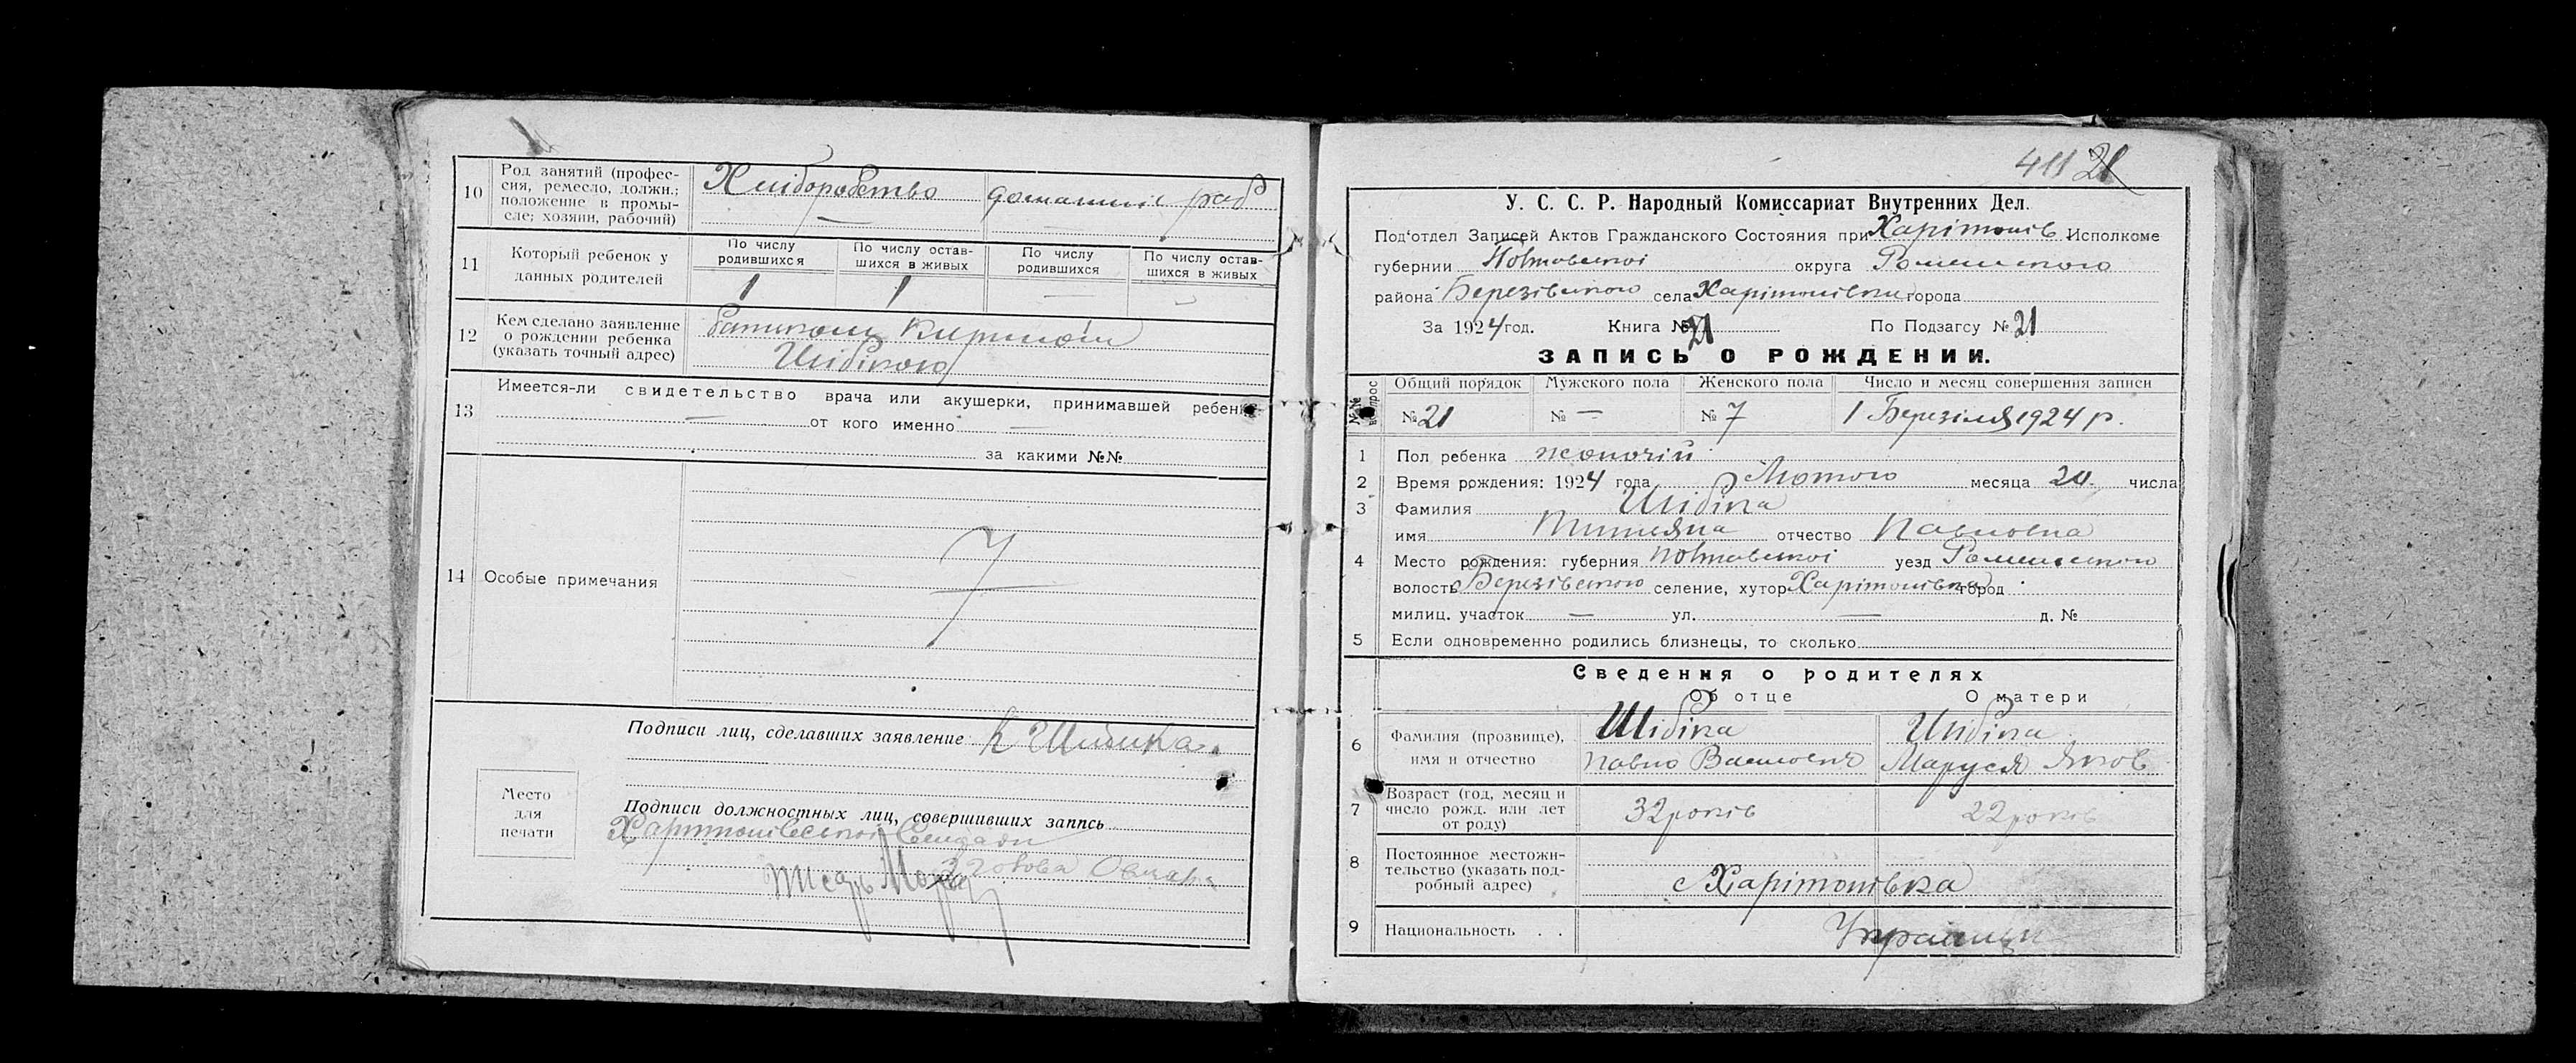 10 Род занятий (профес-
сия, ремесло, должн.;
положение в промы-
сле; хозяин, рабочий)
Хліборобство домашнє
11 Который ребенок у
данных родителей
По числу
родившихся
По числу остав-
шихся в живых
По числу
родившихся
По числу остав-
шихся в живых
1 1 — —
12 Кем сделано заявление
о рождении ребенка
(указать точный адрес)
Шібікою
13 Имеется-ли свидетельство врача или акушерки, принимавшей ребенка
— от кого именно —
за какими №№
14 Особые примечания
Подписи лиц, сделавших заявление К
Место
для
печати
Подписи должностных лиц, совершивших запись
Харітонівської Сільради
411 21
У. С. С. Р. Народный Комиссариат Внутренних Дел.
Под'отдел Записей Актов Гражданского Состояния при Харітонів Исполкоме
губернии Полтавської округа Роменського
района Березівського села Харітонівки города
За 1924 год. Книга № 21 По Подзагсу № 21
ЗАПИСЬ О РОЖДЕНИИ.
№№ вопрос Общий порядок Мужского пола Женского пола Число и месяц совершения записи
№ 21 № — № 7 1 Березіля 1924 р.
1 Пол ребенка жоночій
2 Время рождения: 1924 года Лютого месяца 20 числа
3 Фамилия Шібіка
имя отчество Павловна
4 Место рождения: губерния Полтавської уезд Роменського
волость Березівського селение, хутор Харітонівка город
милиц. участок — ул. — д. №
5 Если одновременно родились близнецы, то сколько
Сведения о родителях
Об отце О матери
6 Фамилия (прозвище),
имя и отчество
Шібіка Шібіка
Павло Васильович Маруся Яков
7 Возраст (год, месяц и
число рожд. или лет
от роду)
32 років 22 років
8 Постоянное местожи-
тельство (указать под-
робный адрес)
с Харітонівка
9 Национальность . .
Українці